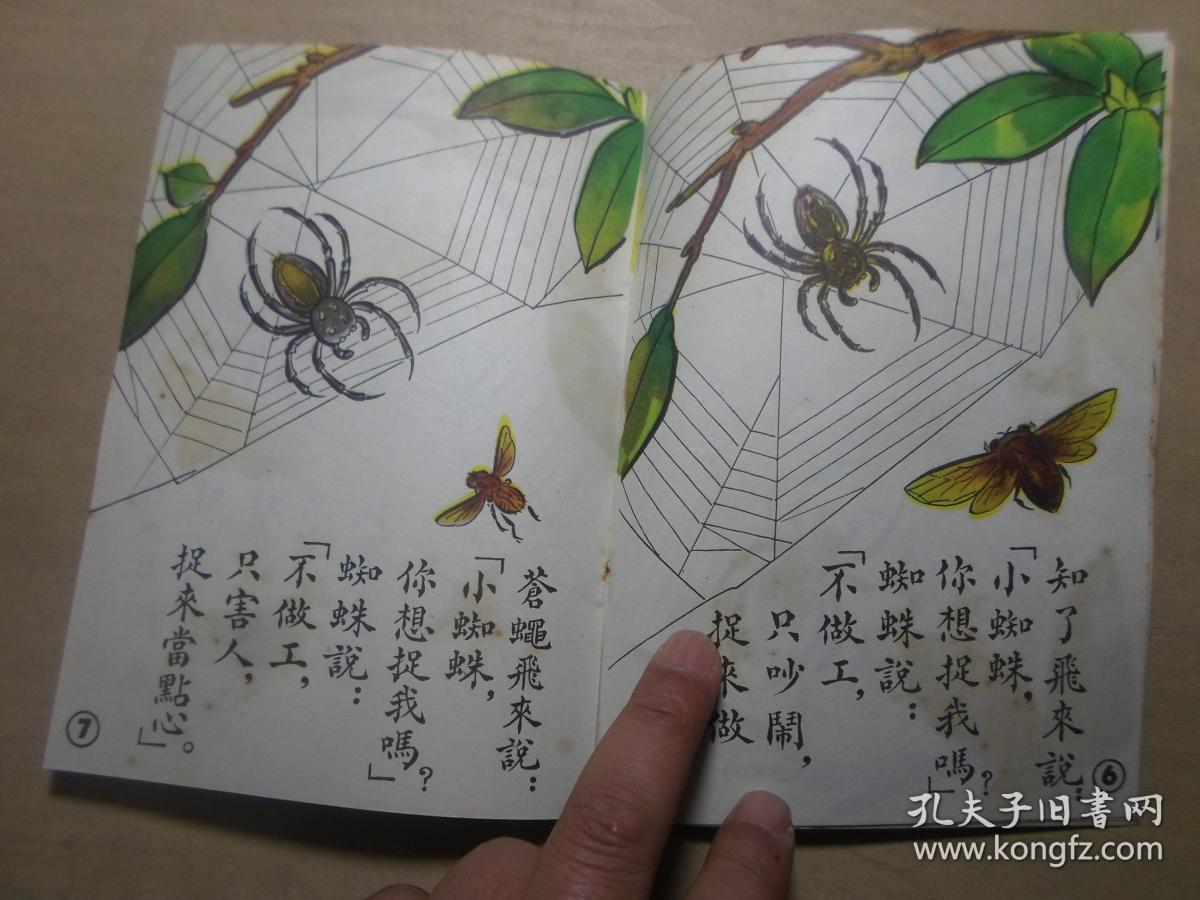 知了飛來說：
「小蜘蛛，
你想捉我嗎？」
蜘蛛說：
「不做工，
只吵鬧，
捉來做
6
蒼蠅飛來說：
「小蜘蛛，
你想捉我嗎？」
蜘蛛說：
「不做工，
只害人，
捉來當點心」。
7
孔夫子旧書网
www.kongfz.com